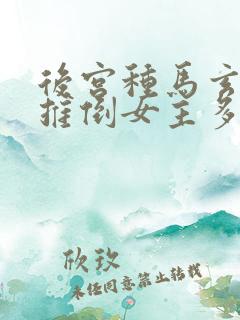 後宮種馬玄
推倒女主多
欣玫
未經同意禁止轉載